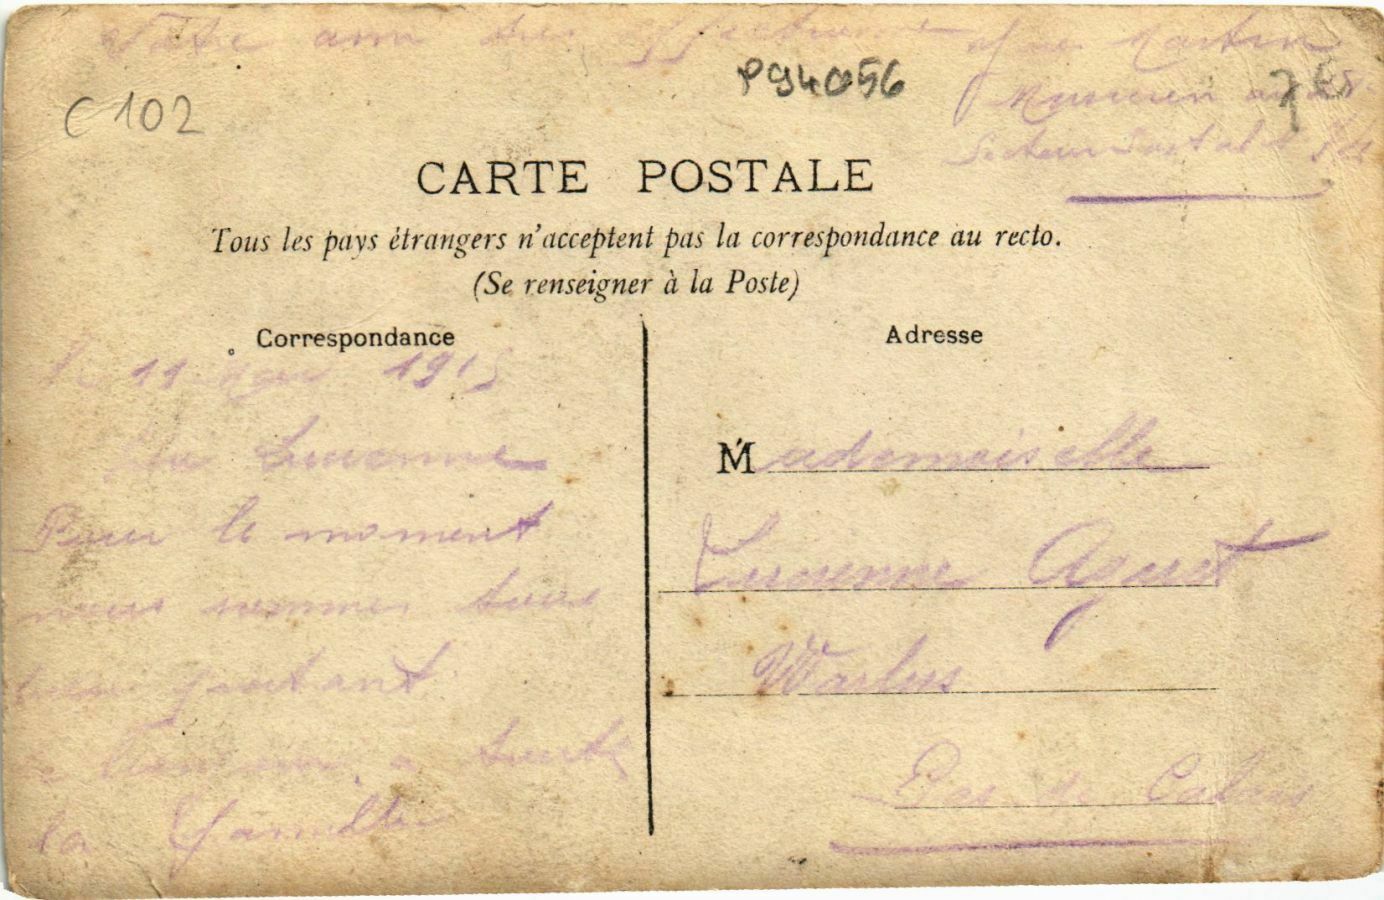 Votre ami très affectionné
Martin
Musicien au
Secteur Postal
P94056
C 102
7€
CARTE POSTALE
Tous les pays étrangers n'acceptent pas la correspondance au recto.
(Se renseigner à la Poste)
Correspondance
Le 11 1915
Lucienne
Pour le moment
nous sommes tous
bien portant
le bonjour a toute
la famille
Adresse
Mademoiselle
Lucienne Aguet
Warlus
Pas de Calais